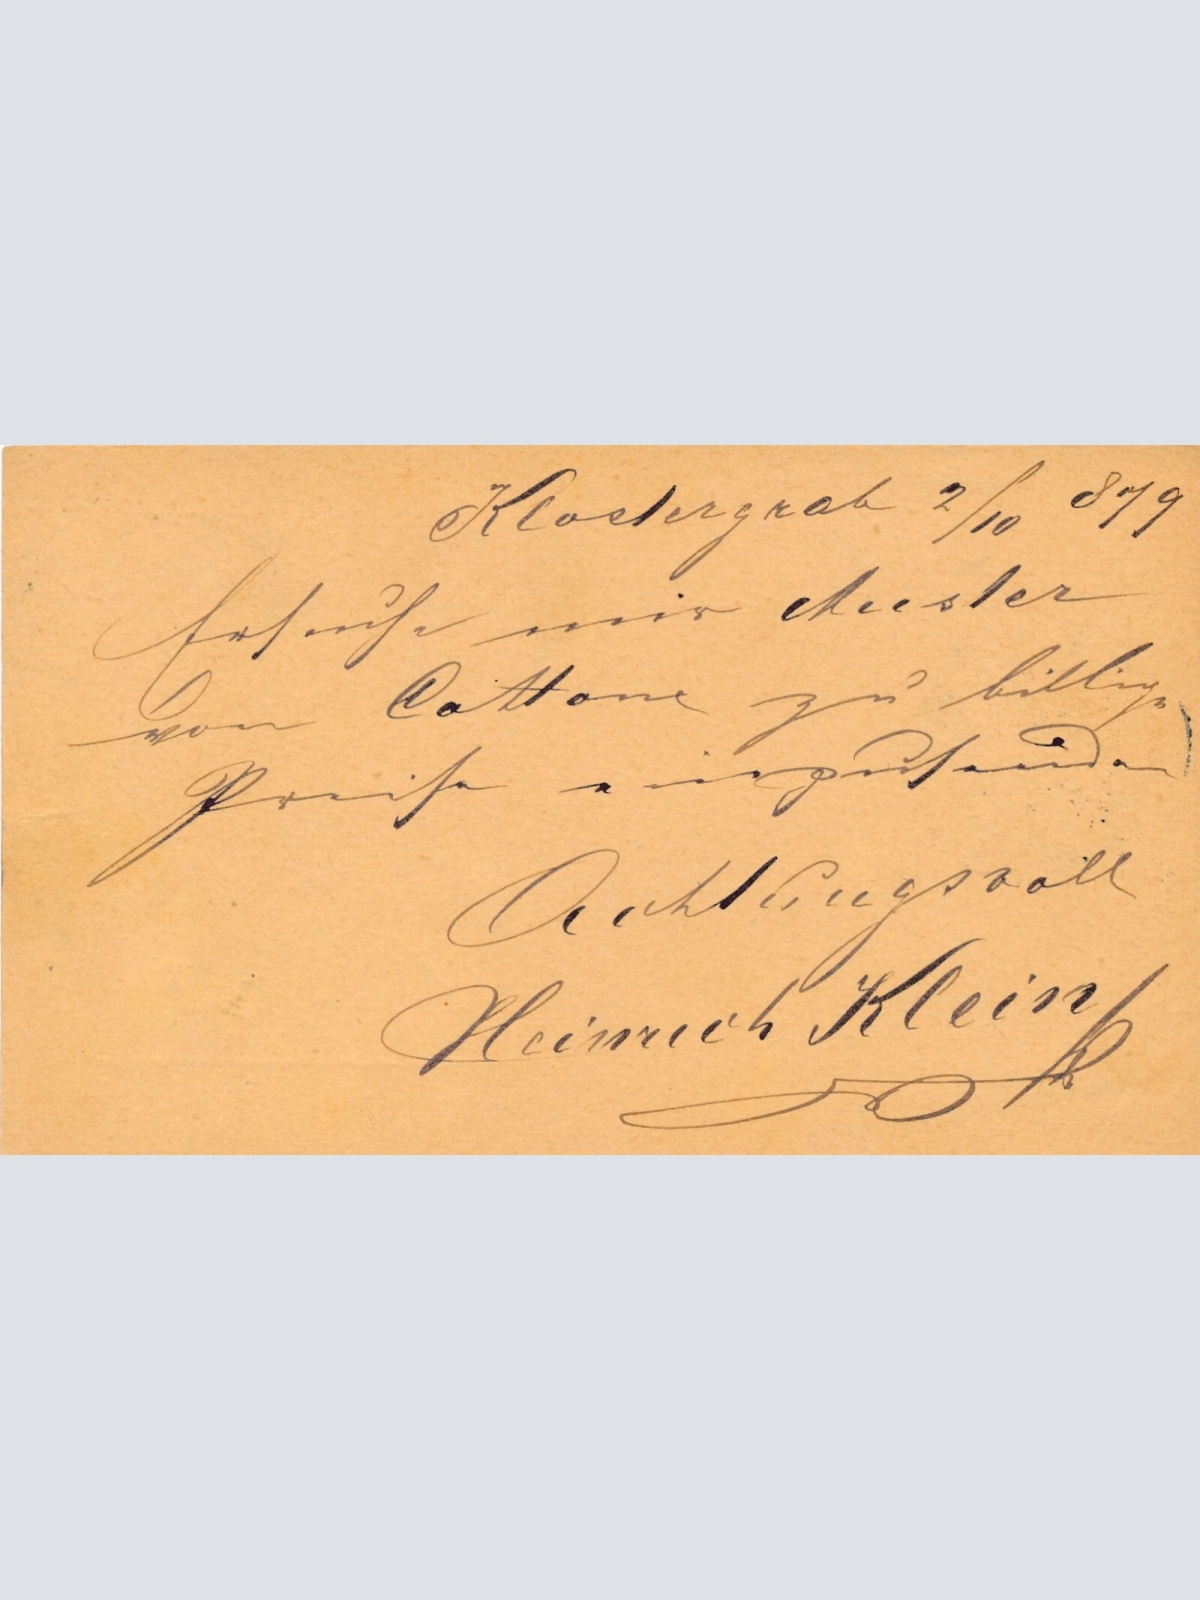 Klostergrab 2/10 879
Ersuche mir Muster
von Cottone zu billige
Preise einzusenden
Achtungsvoll
Heinrich Klein